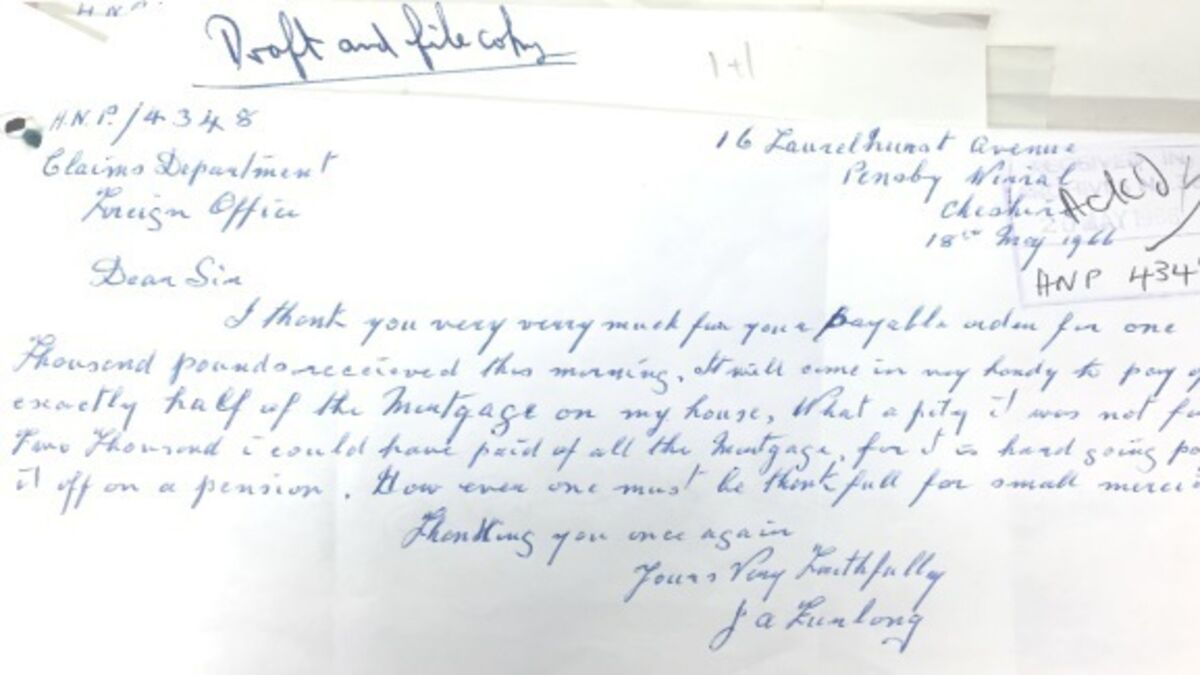 H.N.P.
Draft and file copy
1+1
H.N.P./4348
Claims Department
Foreign Office
16 Laurelhurst Avenue
Pensby Wirral
Cheshire
18th May 1966
RECEIVED IN
20 MAY 1966
Ackd
HNP 434
Dear Sir
I thank you very verry much for your payable order for one
Thousand pounds recieved this morning. It will come in very handy to pay of
exactly half of the Mortgage on my house, What a pity it was not fo
Two Thousand i could have paid of all the Mortgage, for it is hard going pa
it off on a pension. How ever one must be thankfull for small merci
Thanking you once again
Yours Very Faithfully
J a Furlong